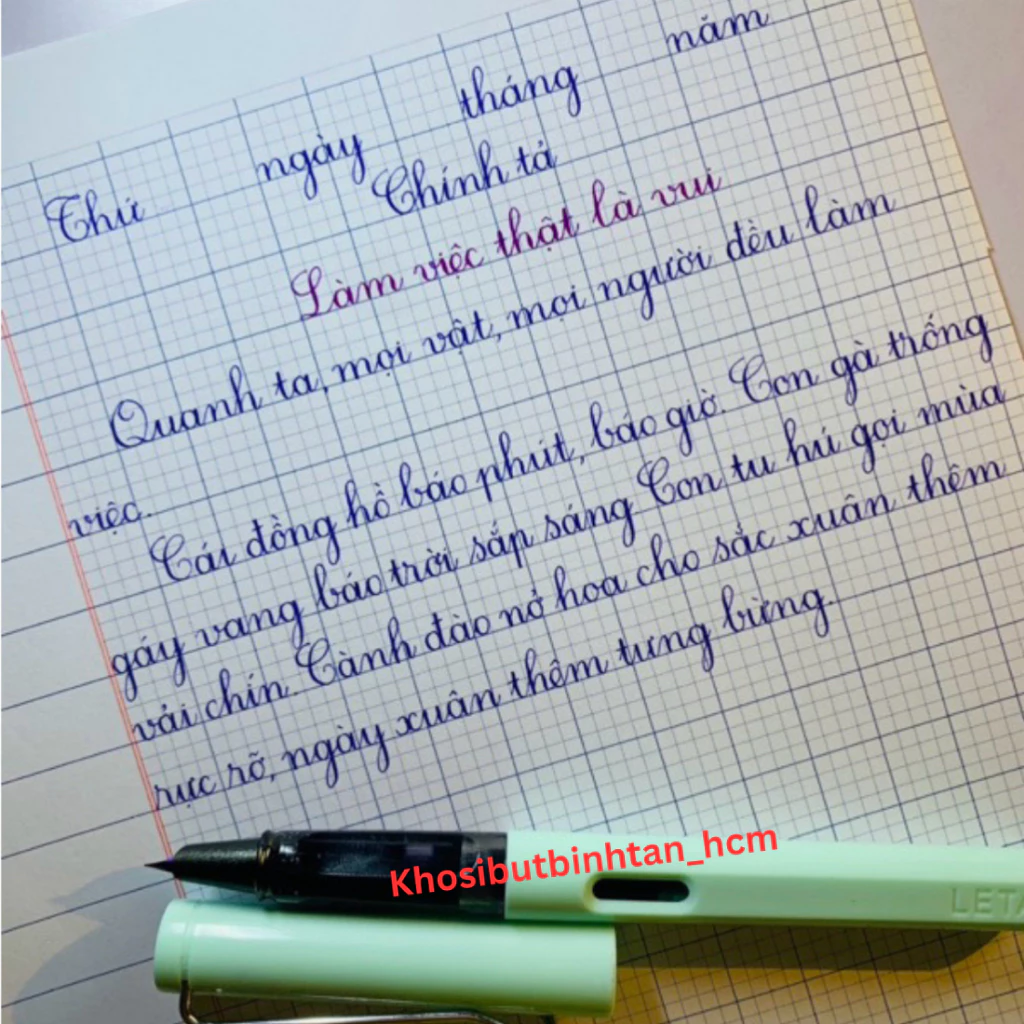 Thứ ngày tháng năm
Chính tả
Làm việc thật là vui
Quanh ta, mọi vật, mọi người đều làm
việc.
Cái đồng hồ báo phút, báo giờ. Con gà trống
gáy vang báo trời sắp sáng Con tu hú gọi mùa
vải chín. Cành đào nở hoa cho sắc xuân thêm
rực rỡ, ngày xuân thêm tưng bừng.
Khosibutbinhtan_hcm